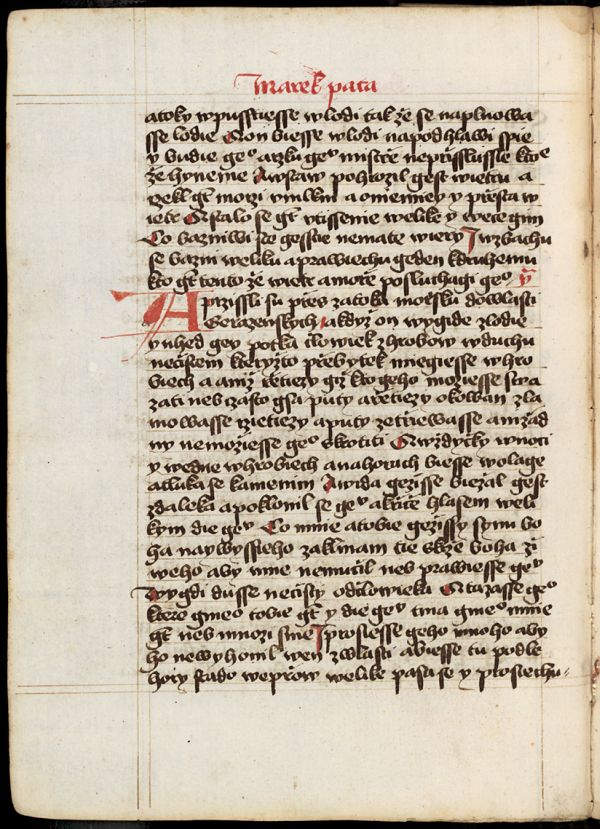 Marek pata
atoky wpusstiesse wlodi tak že se naplnowa
sse lodie A on biesse wlodi napodhlawi spie
y budie geᵒ arzku geᵒ mistře neprzisslussie ktoᵉ
že hyneme A wstaw pohrozil gest wietru a
rzekl gt morzi vmlkni a oniemiey y přesta w
ietr A stalo se gt vtissenie welike y wece gim
Co bazniwi ste gesstie nemate wiery I wzbachu
se bazni weliku a prawiechu geden kdruhemu
kto gt tento že wietr a morze posluchagi geᵒ
A przissli su přes zatoku mořsku dowlasti
Gerazenskych a kdyz on wygide zlodie
y nhed geᵘ potka člowiek zhrobow wduchu
nečistem kteryžto přebytek miegiesse whro
biech a aniž rzetiezy giz kto geho možiesse swa
zati neb czasto gsa puty a rzetiezy okowan zla
mowasse rzietiezy a puty zetřiewasse a nižad
ny nemožiesse geᵒ skrotiti A wždyčky wnoci
y wedne whrobiech a nahorach biesse wolage
a tluka se kamenim A wida gezisse biežal gest
zdaleka a poklonil se geᵘ a křiče hlasem weli
kym die geᵘ Co mnie a tobie gezissy synu bo
ha naywyssieho zaklinam tie skrze boha ži
weho aby mne nemučil neb prawiesse geᵘ
Wygdi dusse nečisty od člowieka A tazasse geᵒ
ktere gmeᵒ tobie gt y die geᵘ tma gmeᵒ mnie
gt neb mnozi sme I prosiesse geho mnoho aby
ho newyhonil wen z wlasti a biesse tu podle
hory stado weprzow welike pasa se y prosiechu